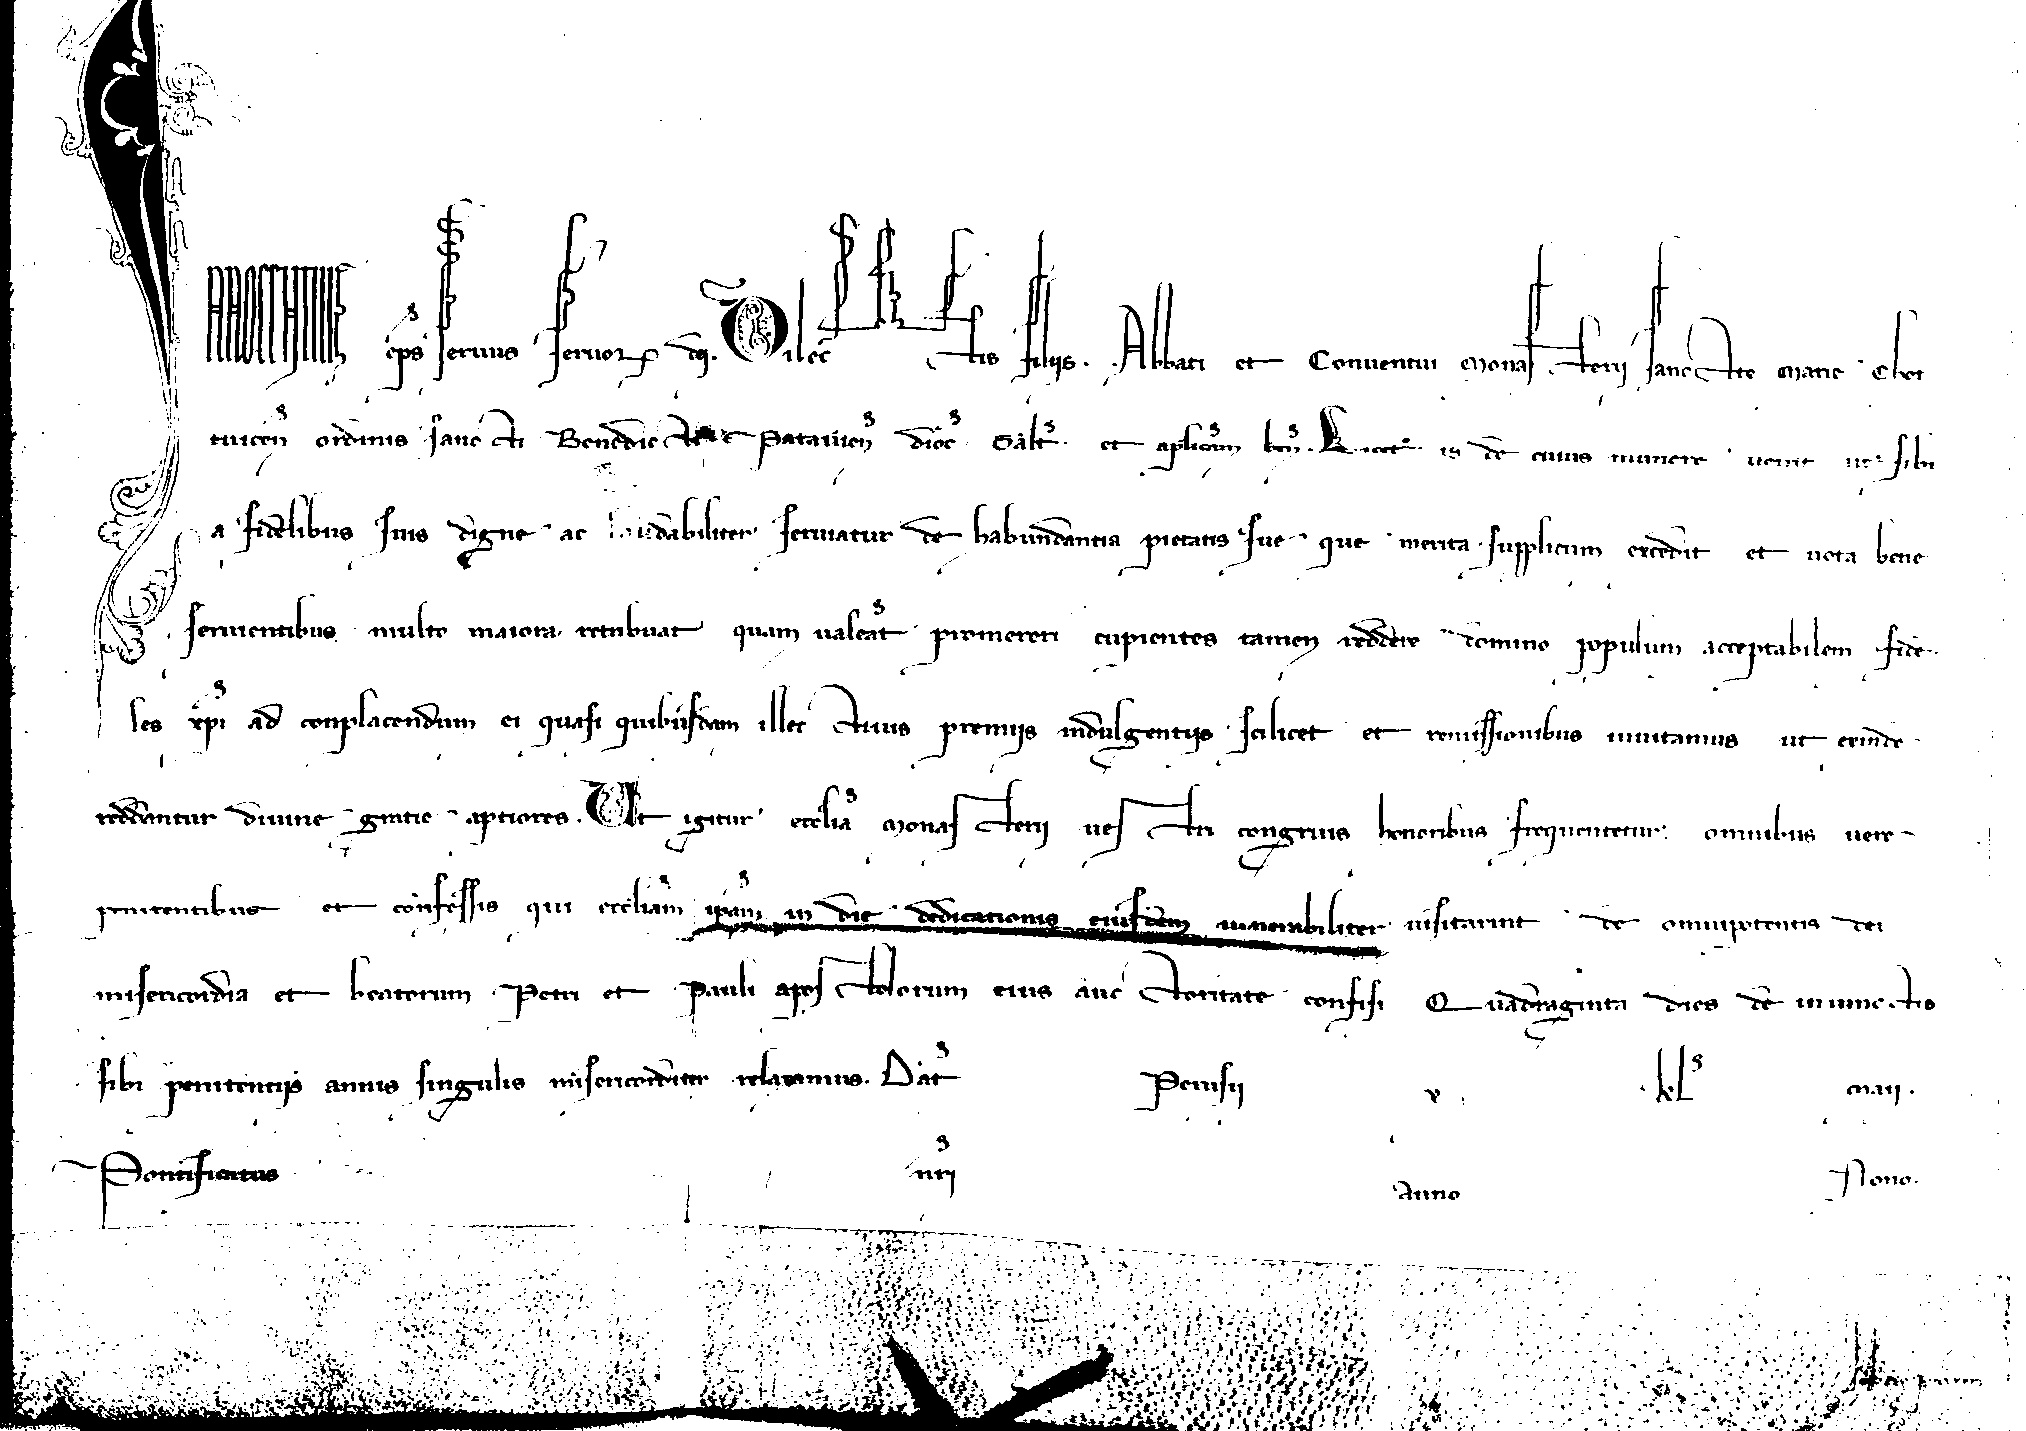 INNOCENTIUS ep̄s seruus seruoꝝ dei. Dilectis filiis. Abbati et Conuentui Monasterii sancte Marie Chot
tuicen̄ ordinis sancti Benedicti Patauien̄ dioc̄ Sal̄t et ap̄licam ben̄. Licet is de cuius munere uenit ut sibi
a fidelibus suis digne ac laudabiliter seruiatur de habundantia pietatis sue que merita supplicum excedit et uota bene
seruientibus multo maiora retribuat quam ualeat promereri cupientes tamen reddere domino populum acceptabilem fide
les xp̄i ad complacendum ei quasi quibusdam illectiuis premiis indulgentiis scilicet et remissionibus inuitamus ut exinde
reddantur diuine gratie aptiores. Ut igitur eccl̄ia Monasterii uestri congruis honoribus frequentetur omnibus uere
penitentibus et confessis qui eccl̄iam ip̄am in die dedicationis eiusdem uenerabiliter uisitarint de omnipotentis dei
misericordia et beatorum Petri et Pauli apostolorum eius auctoritate confisi Quadraginta dies de iniunctis
sibi penitentiis annis singulis misericorditer relaxamus. Dat̄ Perusii v kl̄ maii.
Pontificatus nr̄i anno Nono.